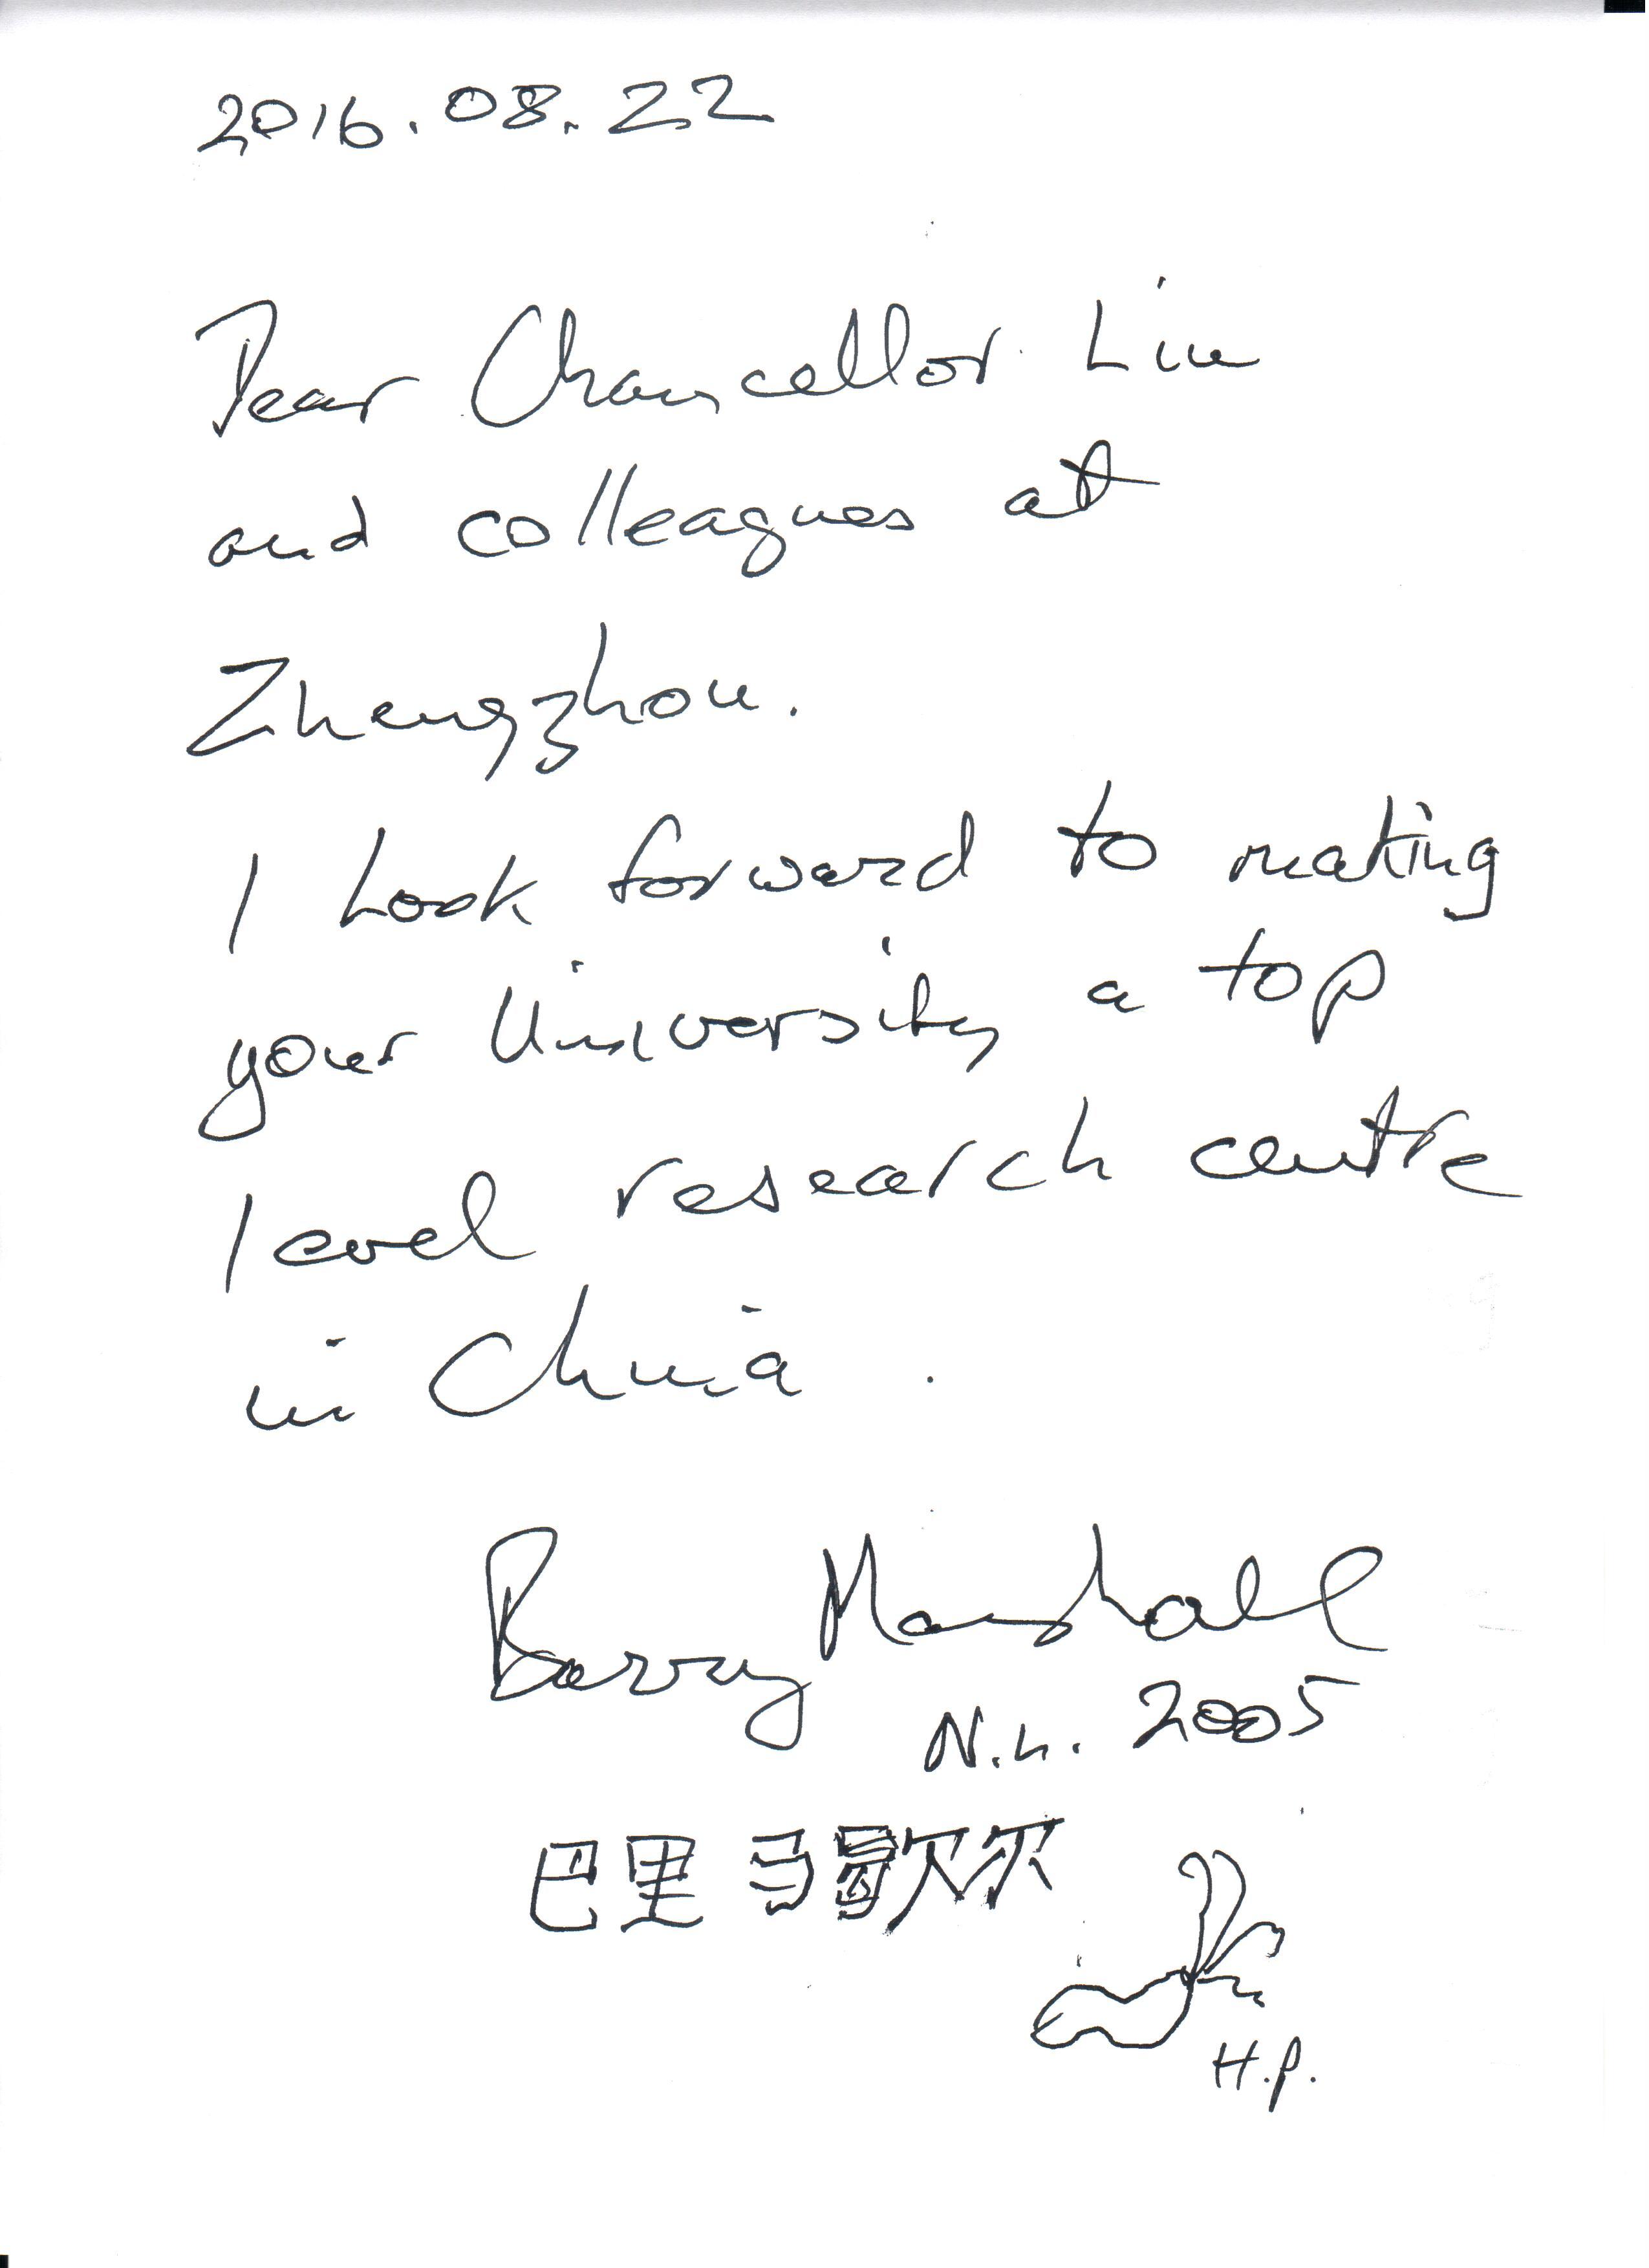 2016.08.22
Dear Chancellor Liu
and colleagues at
Zhengzhou.
I look forward to making
your University a top
level research centre
in China.
Barry Marshall
N.L. 2005
巴里 马歇尔
H.p.